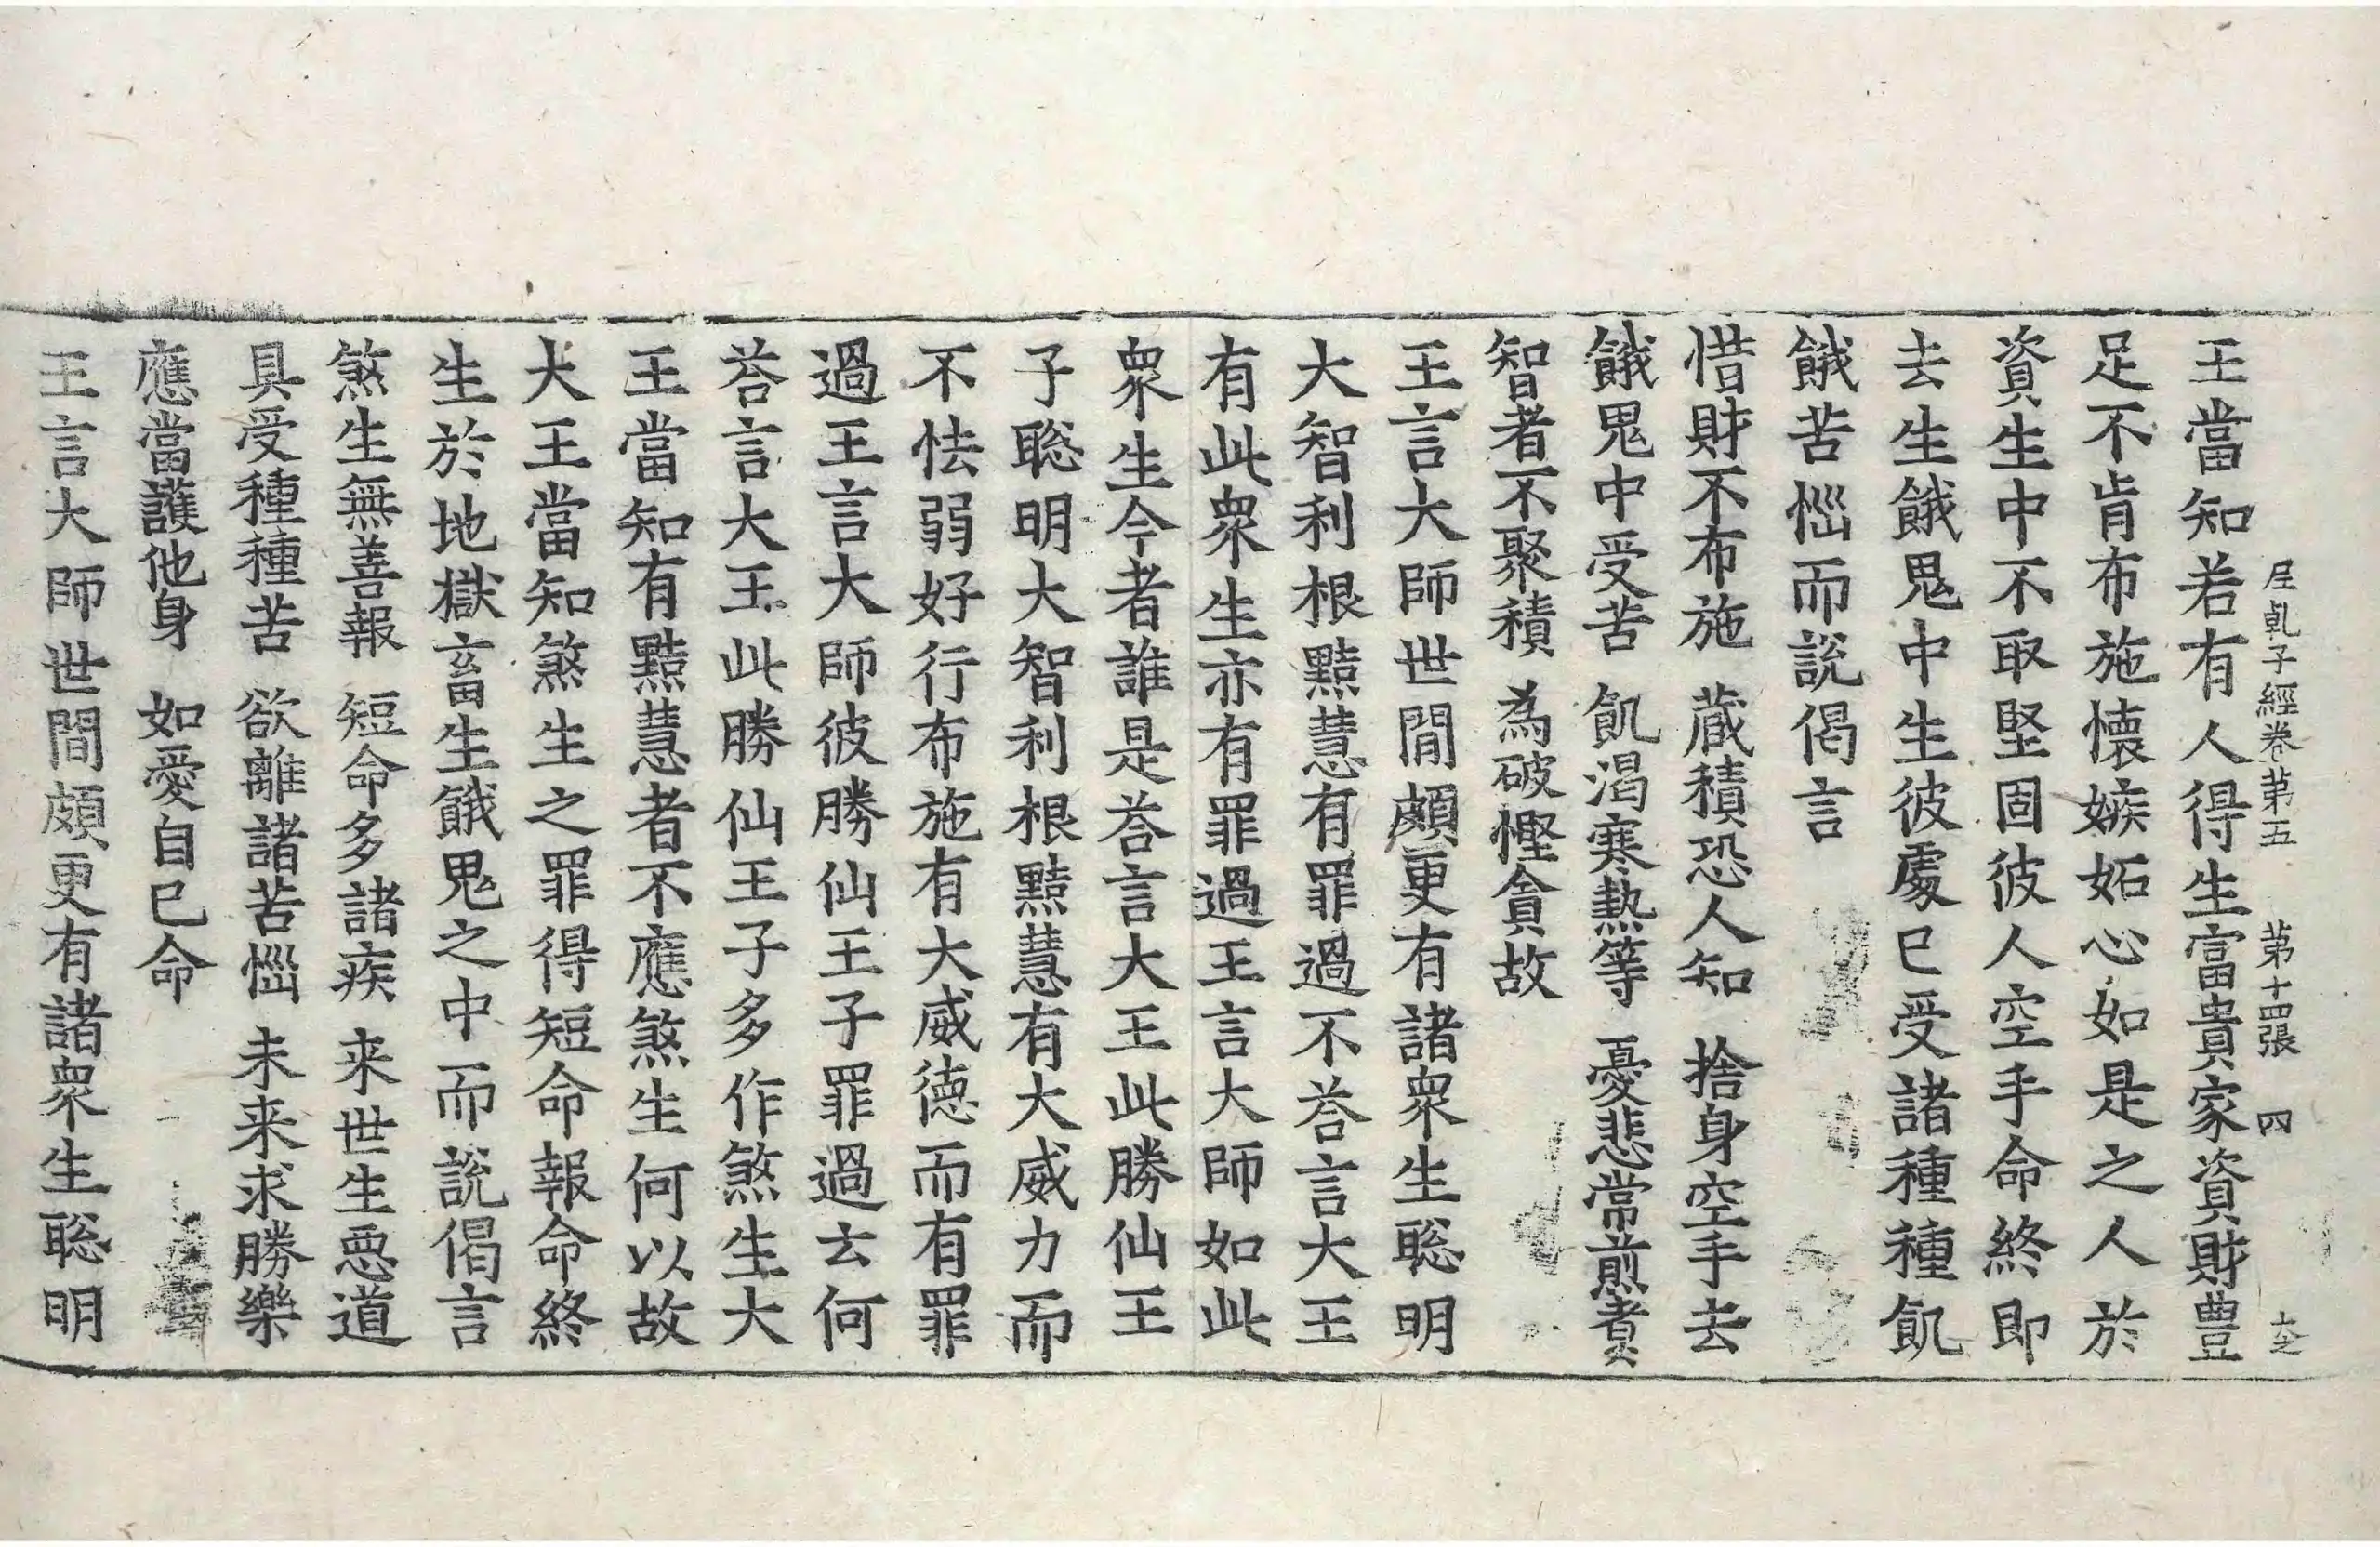 𡰱乹子經卷苐五 苐十四張 四
王當知若有人得生富貴家資財豐
足不肯布施懐嫉妬心如是之人於
資生中不取堅固彼人空手命終即
去生餓鬼中生彼處已受諸種種飢
餓苦惱而說偈言
惜財不布施 蔵積恐人知 捨身空手去
餓鬼中受苦 飢渴寒熱等 憂悲常煎煑
智者不聚積 為破慳貪故
王言大師世間頗更有諸衆生聡明
大智利根黠慧有罪過不荅言大王
有此衆生亦有罪過王言大師如此
衆生今者誰是荅言大王此勝仙王
子聡明大智利根黠慧有大威力而
不怯弱好行布施有大威徳而有罪
過王言大師彼勝仙王子罪過云何
荅言大王此勝仙王子多作煞生大
王當知有黠慧者不應煞生何以故
大王當知煞生之罪得短命報命終
生於地獄畜生餓鬼之中而說偈言
煞生無善報 短命多諸疾 来世生惡道
具受種種苦 欲離諸苦惱 未来求勝樂
應當護他身 如愛自已命
王言大師世間頗更有諸衆生聡明